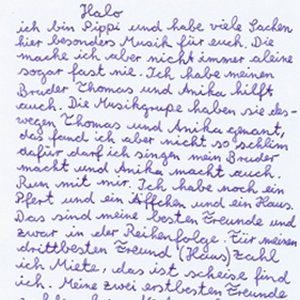 Halo
ich bin Pippi und habe viele Sachen
hier besonders Musik für euch. Die
mache ich aber nicht immer aleine
sogar fast nie. Ich habe meinen
Bruder Thomas und Anika hilft
auch. Die Musikgrupe haben sie des-
wegen Thomas und Anika genant,
das fand ich aber nicht so schlim
dafür darf ich singen mein Bruder
macht und Anika macht auch.
Rum mit mir. Ich habe noch ein
Pfert und ein Äffchen und ein Haus.
Das sind meine besten Freunde und
zwar in der Reihenfolge. Für meinen
drittbesten Freund (Haus) zahl
ich Miete, das ist scheise find
ich. Meine zwei erstbesten Freunde